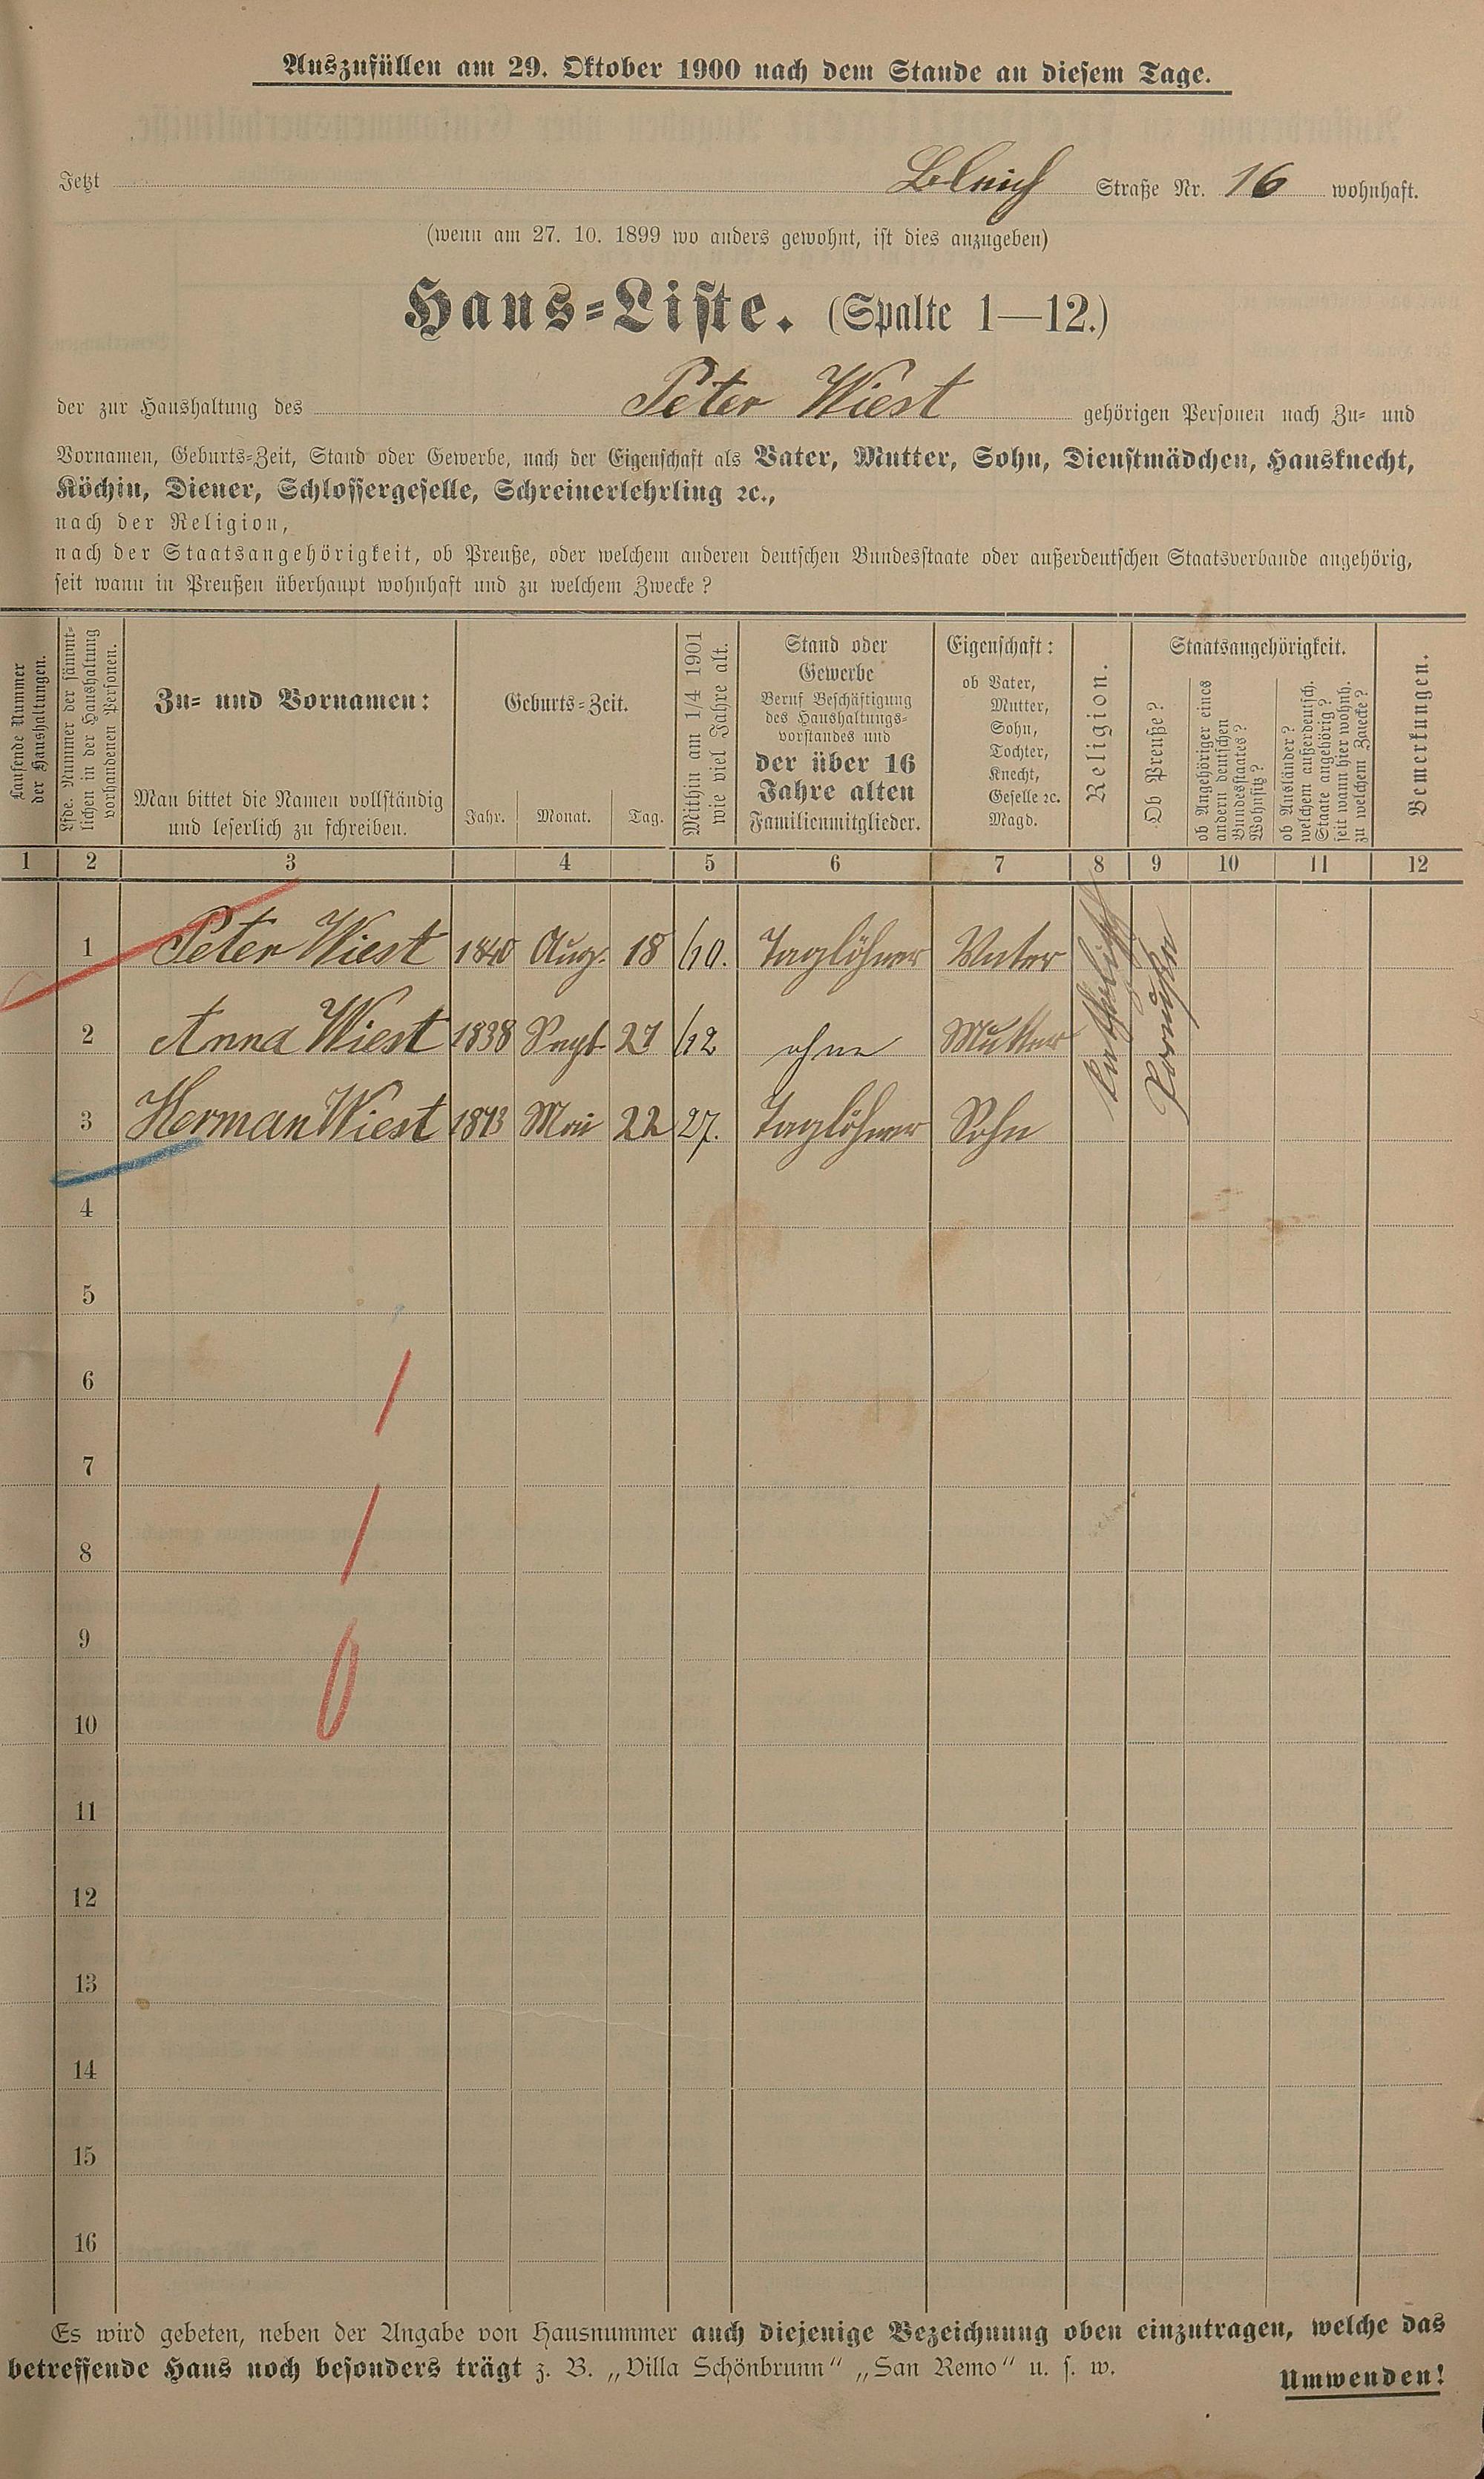 Auszufüllen am 29. Oktober 1900 nach dem Stande an diesem Tage.
Jetzt Bleich Straße Nr. 16 wohnhaft.
(wenn am 27. 10. 1899 wo anders gewohnt, ist dies anzugeben)
Haus-Liste. (Spalte 1—12.)
der zur Haushaltung des Peter Wiest gehörigen Personen nach Zu- und
Vornamen, Geburts-Zeit, Stand oder Gewerbe, nach der Eigenschaft als Vater, Mutter, Sohn, Dienstmädchen, Hausknecht,
Köchin, Diener, Schlossergeselle, Schreinerlehrling ꝛc.,
nach der Religion,
nach der Staatsangehörigkeit, ob Preuße, oder welchem anderen deutschen Bundesstaate oder außerdeutschen Staatsverbande angehörig,
seit wann in Preußen überhaupt wohnhaft und zu welchem Zwecke?
Laufende Nummer
der Haushaltungen.
Lfde. Nummer der sämmt-
lichen in der Haushaltung
vorhandenen Personen.
Zu- und Vornamen:
Man bittet die Namen vollständig
und leserlich zu schreiben.
Geburts-Zeit.
Jahr. Monat. Tag.
Mithin am 1/4 1901
wie viel Jahre alt.
Stand oder
Gewerbe
Beruf Beschäftigung
des Haushaltungs-
vorstandes und
der über 16
Jahre alten
Familienmitglieder.
Eigenschaft:
ob Vater,
Mutter,
Sohn,
Tochter,
Knecht,
Geselle ꝛc.
Magd.
Religion.
Staatsangehörigkeit.
Ob Preuße?
ob Angehöriger eines
andern deutschen
Bundesstaates?
Wohnsitz?
ob Ausländer?
welchem außerdeutsch.
Staate angehörig?
seit wann hier wohnh.
zu welchem Zwecke?
Bemerkungen.
1 2 3 4 5 6 7 8 9 10 11 12
1 Peter Wiest 1840 Aug. 18 60. Taglöhner Vater
2 Anna Wiest 1838 Sept. 21 62 ohne Mutter
3 Herman Wiest 1873 Mai 22 27. Taglöhner Sohn
Katholisch
Preuße
4
5
6
7
8
9
10
11
12
13
14
15
16
Es wird gebeten, neben der Angabe von Hausnummer auch diejenige Bezeichnung oben einzutragen, welche das
betreffende Haus noch besonders trägt z. B. „Villa Schönbrunn“ „San Remo“ u. s. w.
Umwenden!